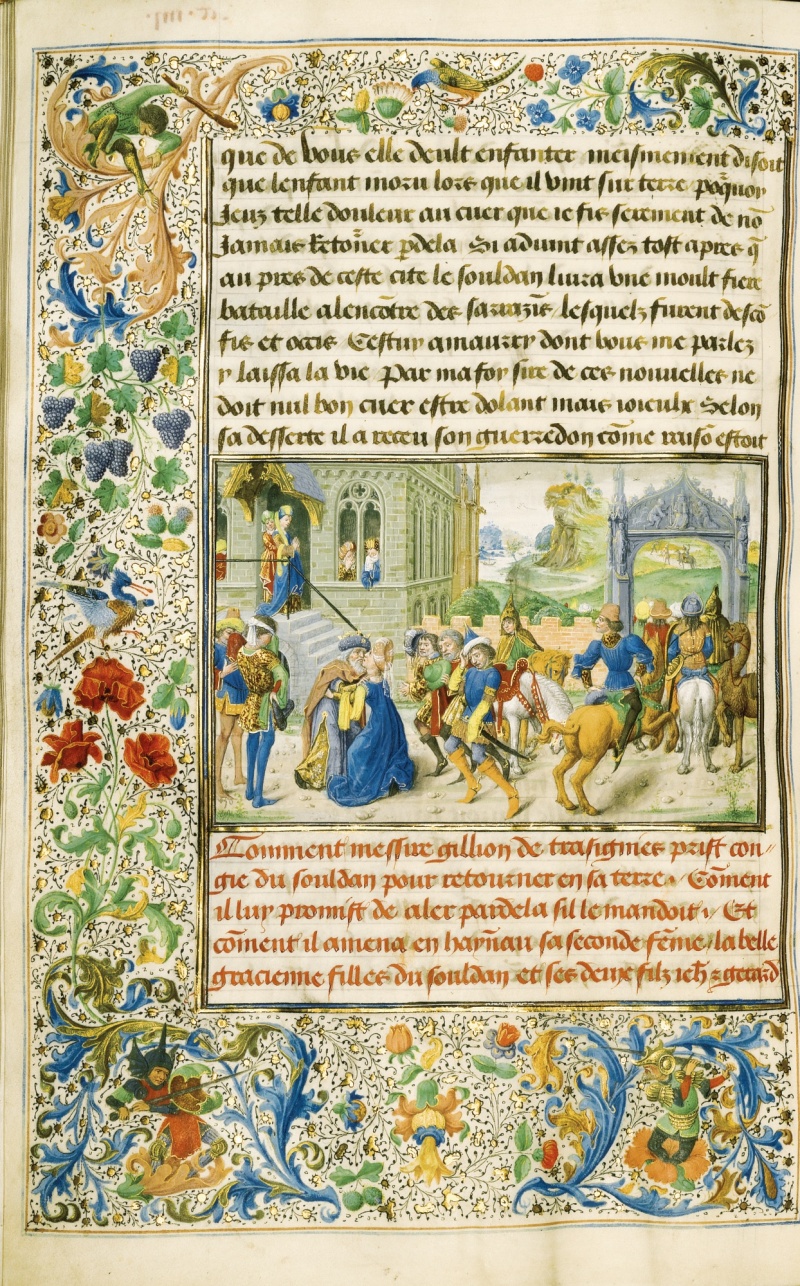 que de vous elle deult enfanter meismement disoit
que lenfant moru lors que il vint sur terre poquoy
Jeuz telle douleur au cuer que ie fis serement de nō
Jamais Retoner pdela Si aduint assez tost apres q̄
au pres de ceste cite le souldan liura vne moult fiere
bataille alencōtre des sarazīs lesquelz furent descō
fis et occis Cestuy amaury dont vous me parlez
y laissa la vie Par ma foy sire de ces nouuelles ne
doit nul bon cuer estre dolant mais ioieulx Selon
sa desserte il a receu son guerredon cōme raisō estoit
Comment messire gillion de trasignies prist con〃
gie du souldan pour retourner en sa terre. Cōment
il luy promist de aler pardela sil le mandoit. Et
cōment il amena en haynau sa seconde fēme la belle
gracienne filles du souldan et ses deux filz ieh̄ z gerard